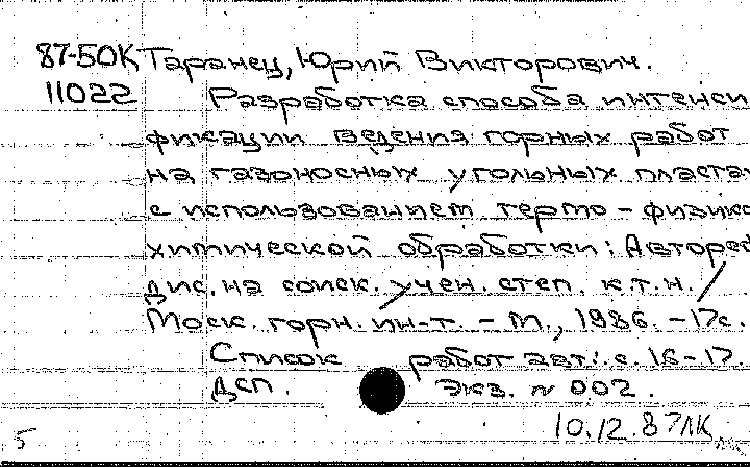 87-50К Таранец, Юрий Викторович.
11022 Разработка способа интенси
фикации ведения горных работ
на газоносных угольных пласта
с использованием термо - физико
химической обработки: Автореф
дис. на соиск. учен. степ. к.т.н. /
Моск. горн. ин-т. - М., 1986. - 17с.
Список работ авт.: с. 16-17.
ДСП. Экз. N 002.
10.12.87 ЛК
5